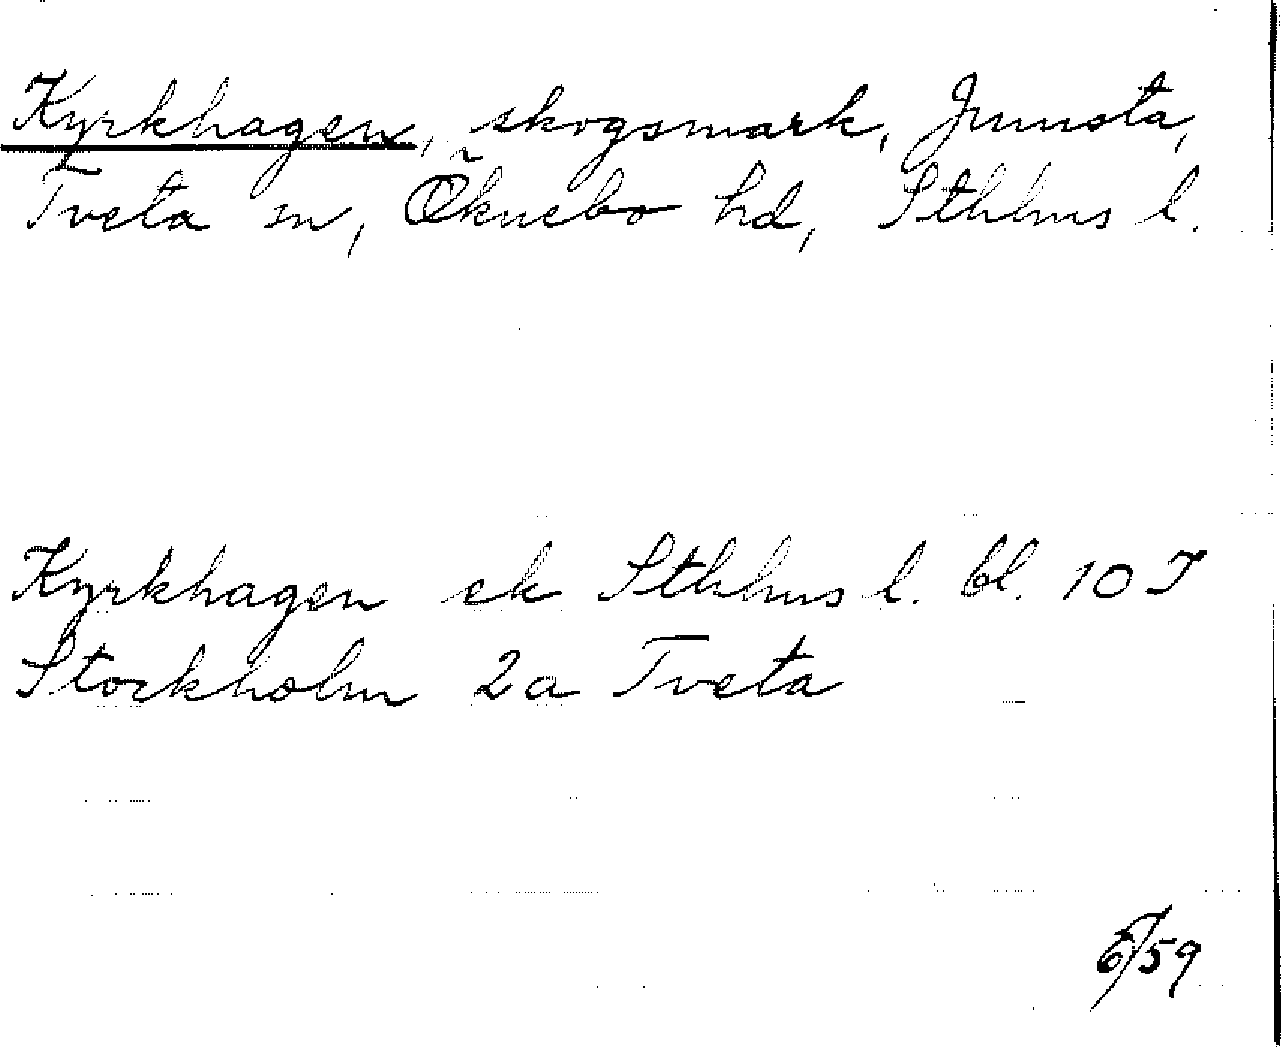 Kyrkhagen, skogsmark, Jumsta,
Tveta sn, Öknebo hd, Sthlms l.
Kyrkhagen ek Sthlms l. bl. 10 I
Stockholm 2a Tveta
6/59